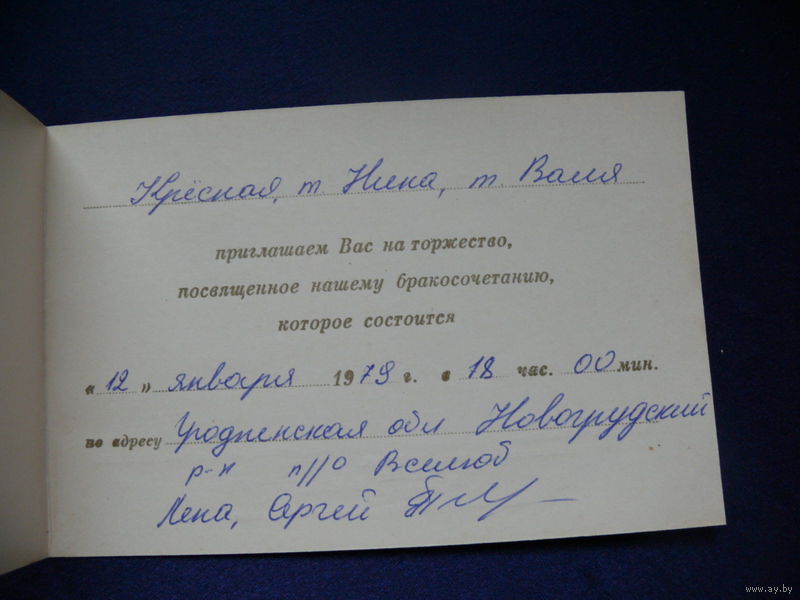 Крёсная, т. Нина, т. Валя
приглашаем Вас на торжество,
посвященное нашему бракосочетанию,
которое состоится
« 12 » января 1979 г. в 18 час. 00 мин.
по адресу Гродненская обл Новогрудский
р-н п//о Вселюб
Лена, Сергей
www.ay.by